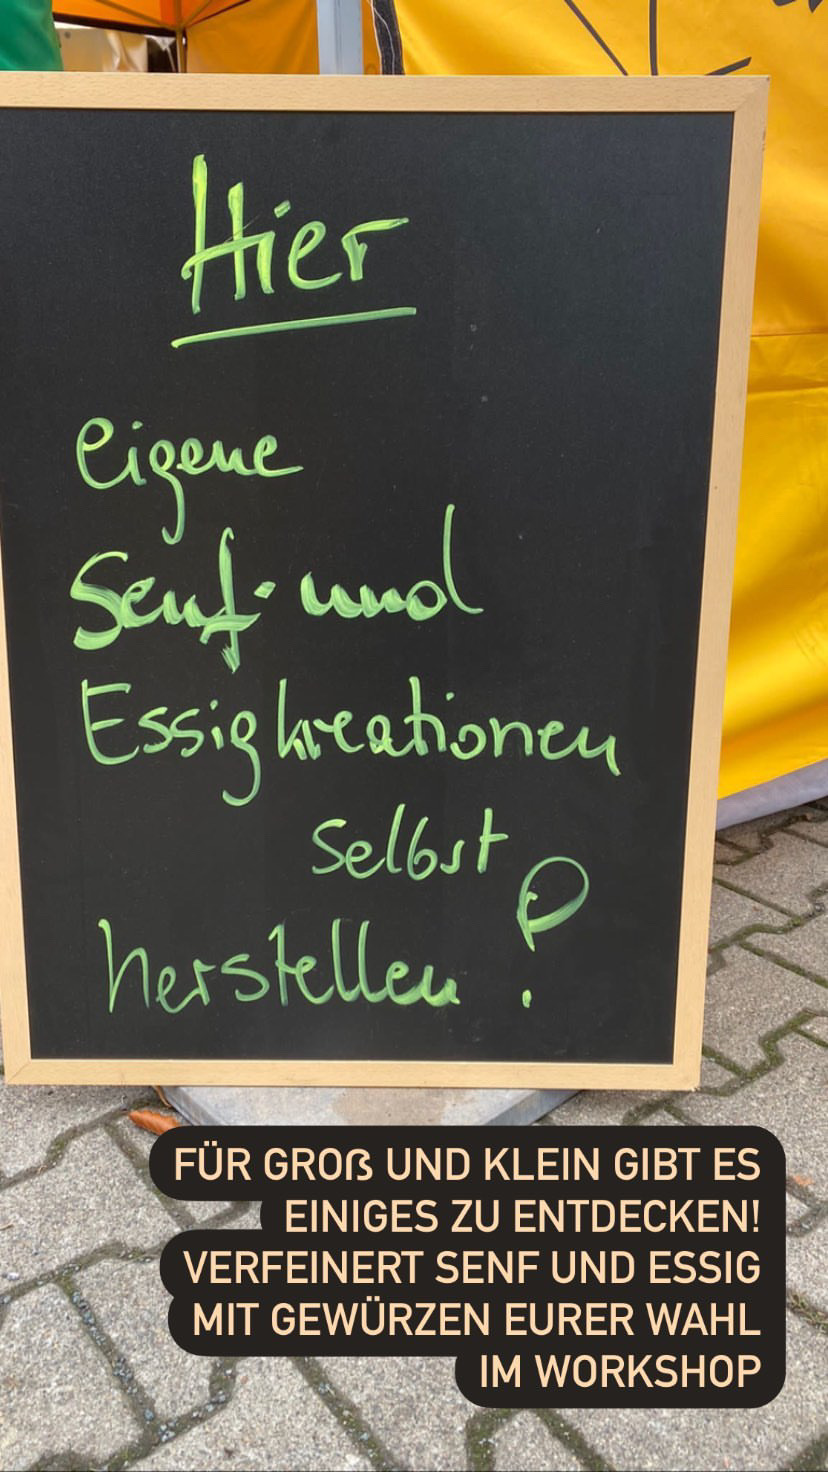 Hier
eigene
Senf- und
Essigkreationen
selbst
herstellen!
FÜR GROß UND KLEIN GIBT ES
EINIGES ZU ENTDECKEN!
VERFEINERT SENF UND ESSIG
MIT GEWÜRZEN EURER WAHL
IM WORKSHOP